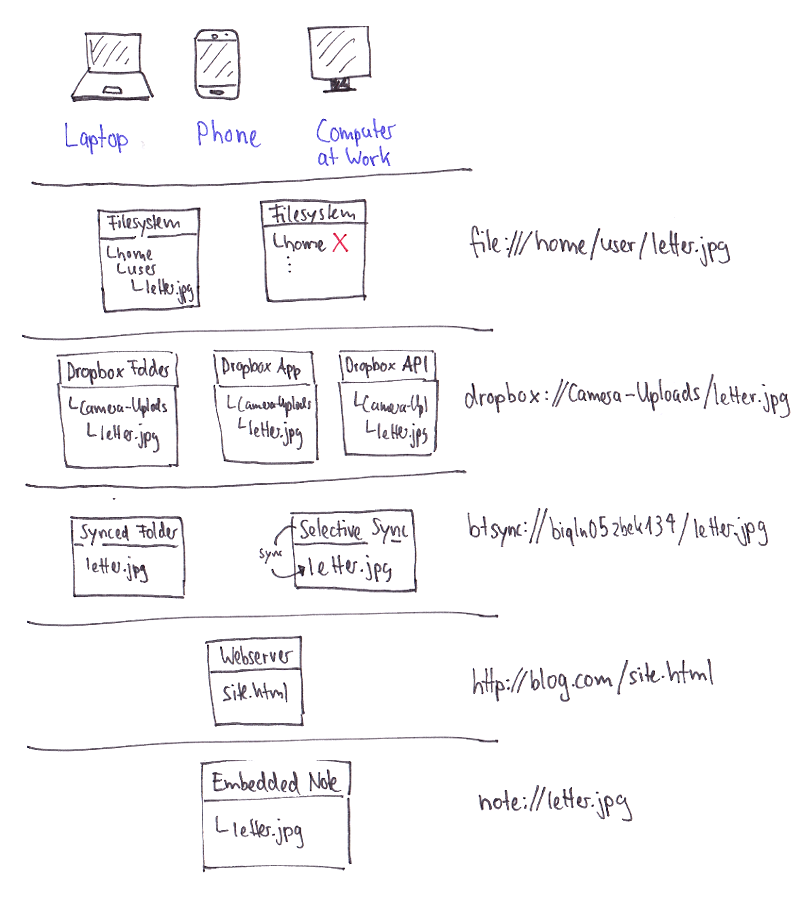 Laptop
Phone
Computer
at Work
Filesystem
home
user
letter.jpg
Filesystem
home X
file:///home/user/letter.jpg
Dropbox Folder
Camera-Uplods
letter.jpg
Dropbox App
Camera-Uploads
letter.jpg
Dropbox API
Camera-Upl
letter.jpg
dropbox://Camera-Uploads/letter.jpg
Synced Folder
letter.jpg
Selective Sync
sync
letter.jpg
btsync://biqln05zbek134/letter.jpg
Webserver
site.html
http://blog.com/site.html
Embedded Note
letter.jpg
note://letter.jpg